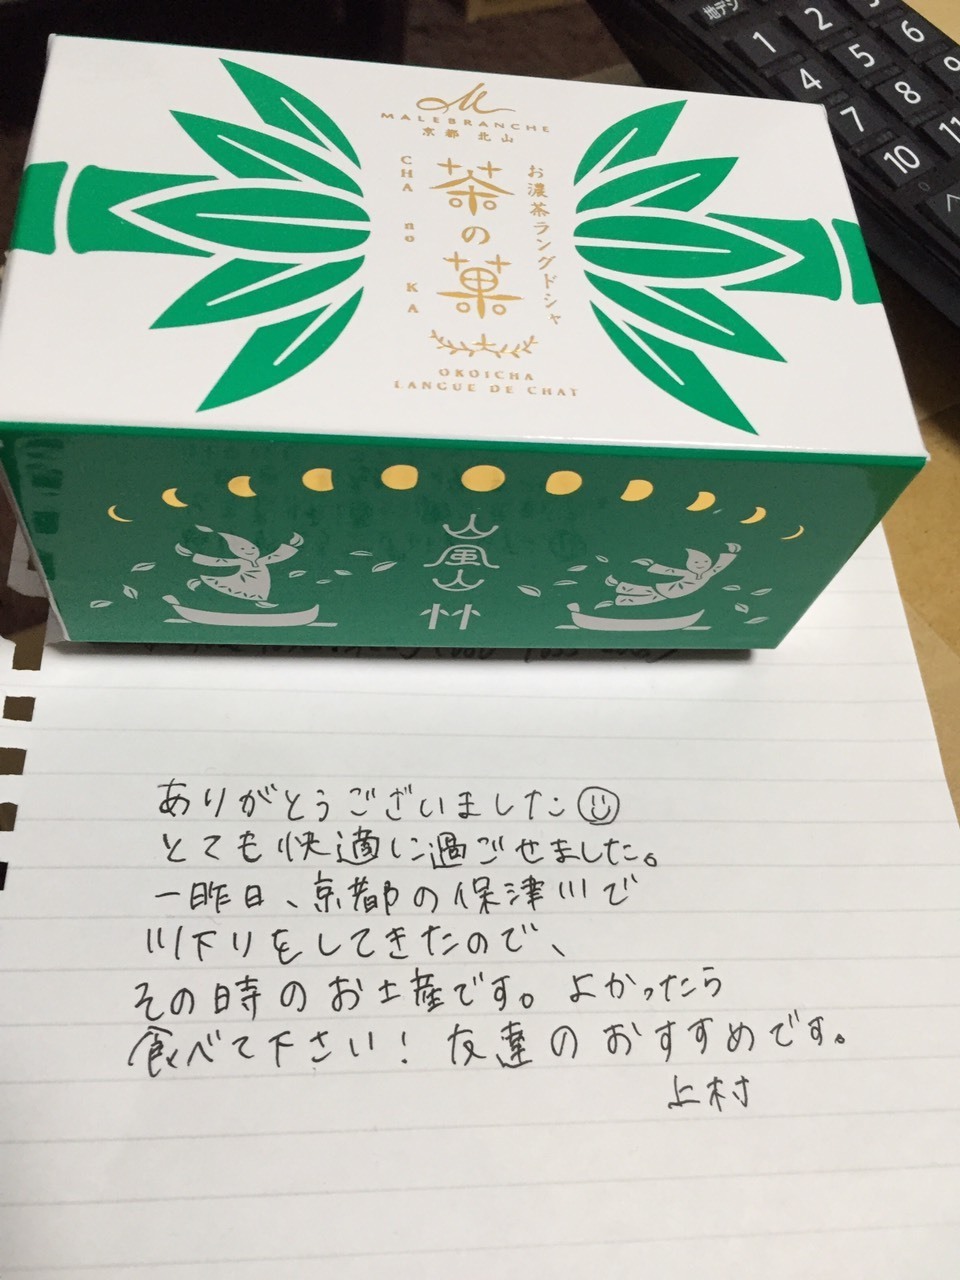 MALEBRANCHE
京都 北山
茶の菓
お濃茶ラングドシャ
CHA no KA
OKOICHA
LANGUE DE CHAT
ありがとうございました
とても快適に過ごせました。
一昨日、京都の保津川で
川下りをしてきたので、
その時のお土産です。よかったら
食べて下さい！ 友達のおすすめです。
上村
地デジ
1 2
4 5 6
7 8
10 11